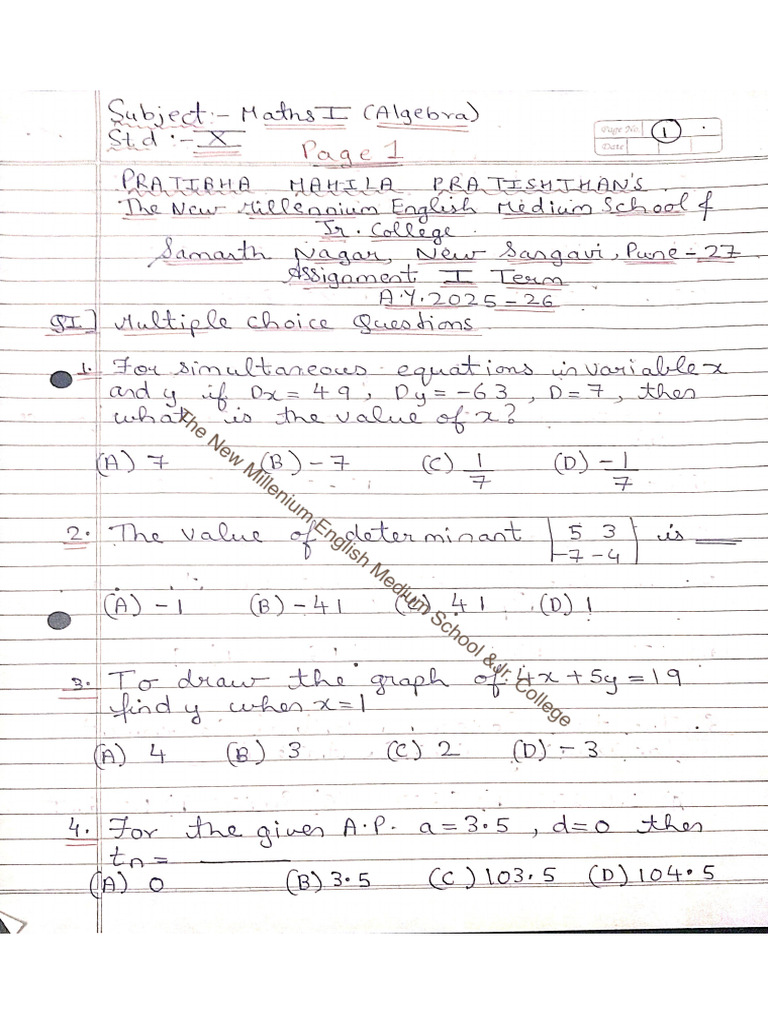 Subject:- Maths I (Algebra)
Std :- X
Page No. 1
Date
Page 1
PRATIBHA MAHILA PRATISHTHAN'S
The New Millennium English Medium School &
Jr. College
Samarth Nagar, New Sangavi, Pune-27
Assignment I Term
A.Y. 2025-26
QI] Multiple choice Questions
1. For simultaneous equations in variable x
and y if Dx = 49, Dy = -63, D = 7, then
what is the value of x?
(A) 7 (B) -7 (C) 1/7 (D) -1/7
2. The value of determinant | 5 3 | is ___
| -7 -4 |
(A) -1 (B) -41 (C) 41 (D) 1
3. To draw the graph of 4x + 5y = 19
find y when x = 1
(A) 4 (B) 3 (C) 2 (D) -3
4. For the given A.P. a = 3.5, d = 0 then
tn = ______
(A) 0 (B) 3.5 (C) 103.5 (D) 104.5
The New Millenium English Medium School & Jr. College